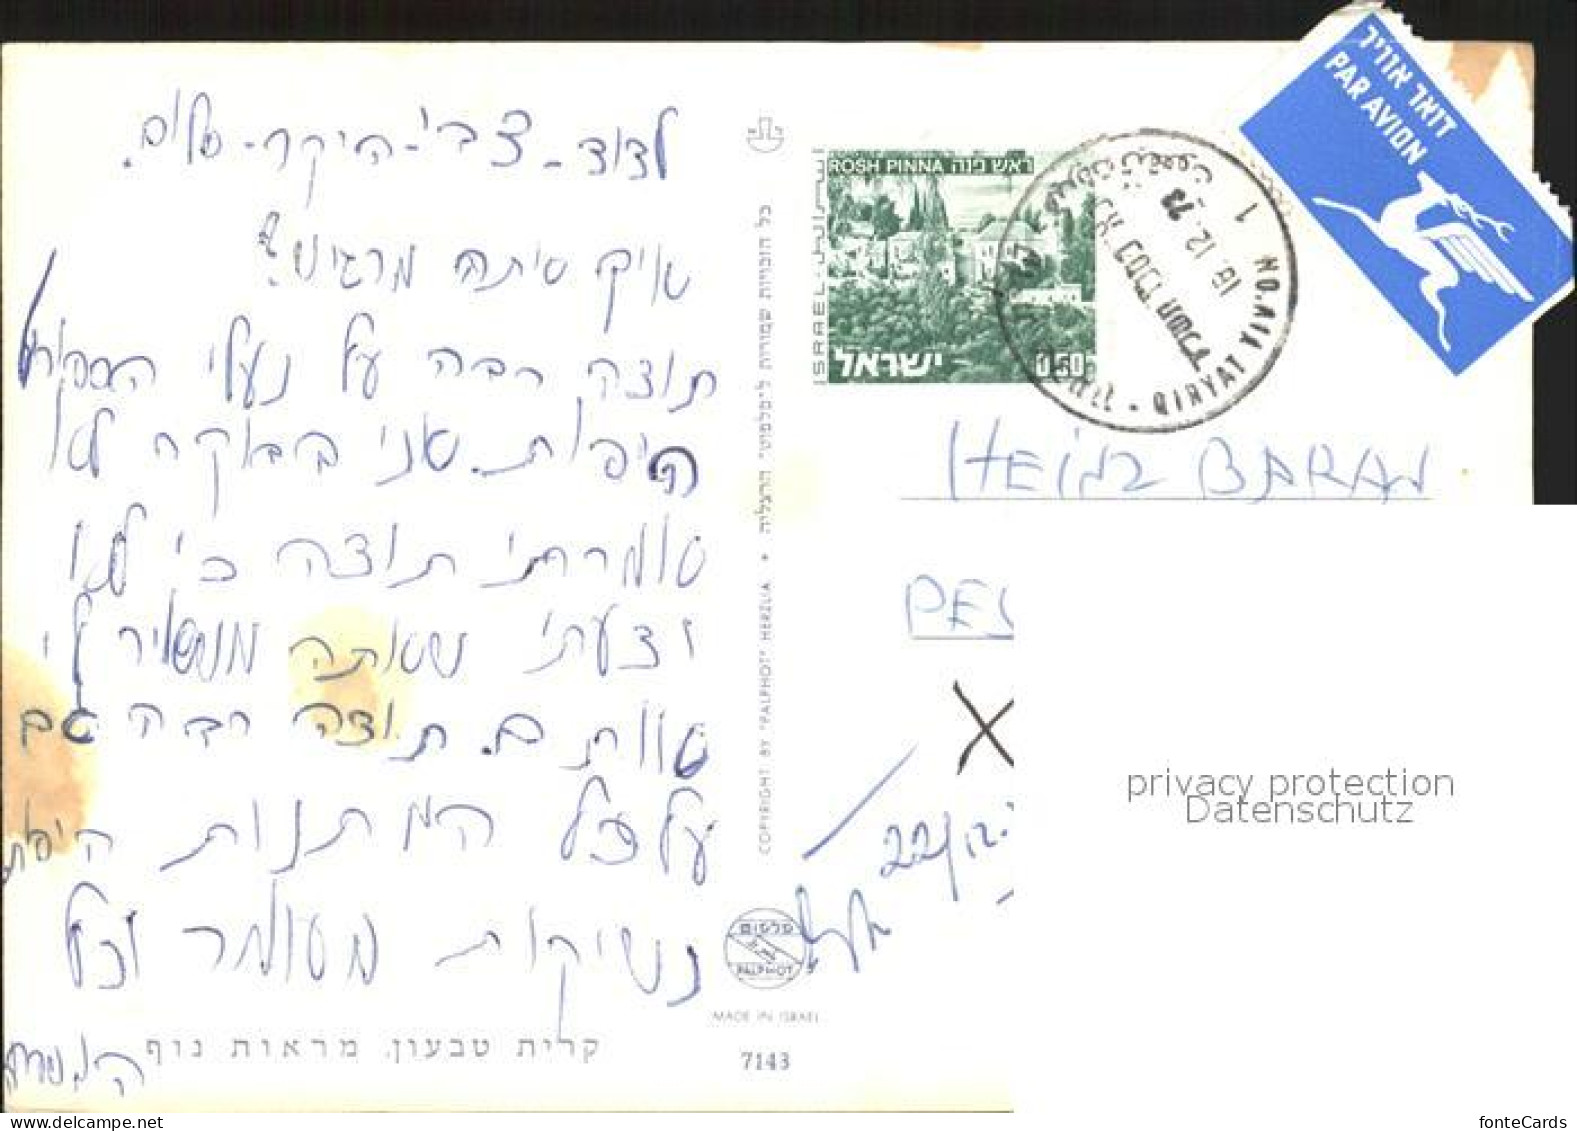 לדוד - צבי - היקר - שלום.
איך
תודה רבה על נעלי הספורט
היפות. אני בבאקה לא
תודה כי לא
ידעתי שאתה משאיר לי
אותם. תודה רבה גם
על כל המתנות היפות
נשיקות מעומר וכל
קרית טבעון, מראות נוף
7143
MADE IN ISRAEL
פלפוט
PALPHOT
כל הזכויות שמורות ל"פלפוט" הרצליה • COPYRIGHT BY "PALPHOT" HERZLIA
ROSH PINNA ראש פנה
ISRAEL
اسرائيل
ישראל
0.50
QIRYAT TIV'ON
1
18.12.73
דואר אוויר
PAR AVION
HEINZ BARAN
PES
22/12.
privacy protection
Datenschutz
www.delcampe.net
fonteCards